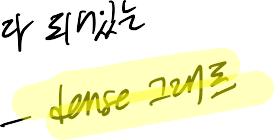 다 되어있는
- dense 그래프